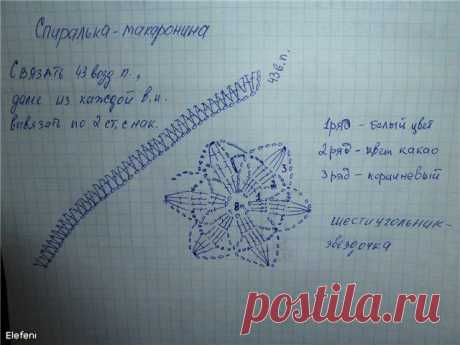 Спиралька-макаронина
Связать 43 возд п.,
далее из каждой в.п.
вывязать по 2 ст. с нак.
43 в.п.
1 ряд - белый цвет
2 ряд - цвет какао
3 ряд - коричневый
шестиугольник-
звездочка
3
2
1
8п
Elefeni
postila.ru